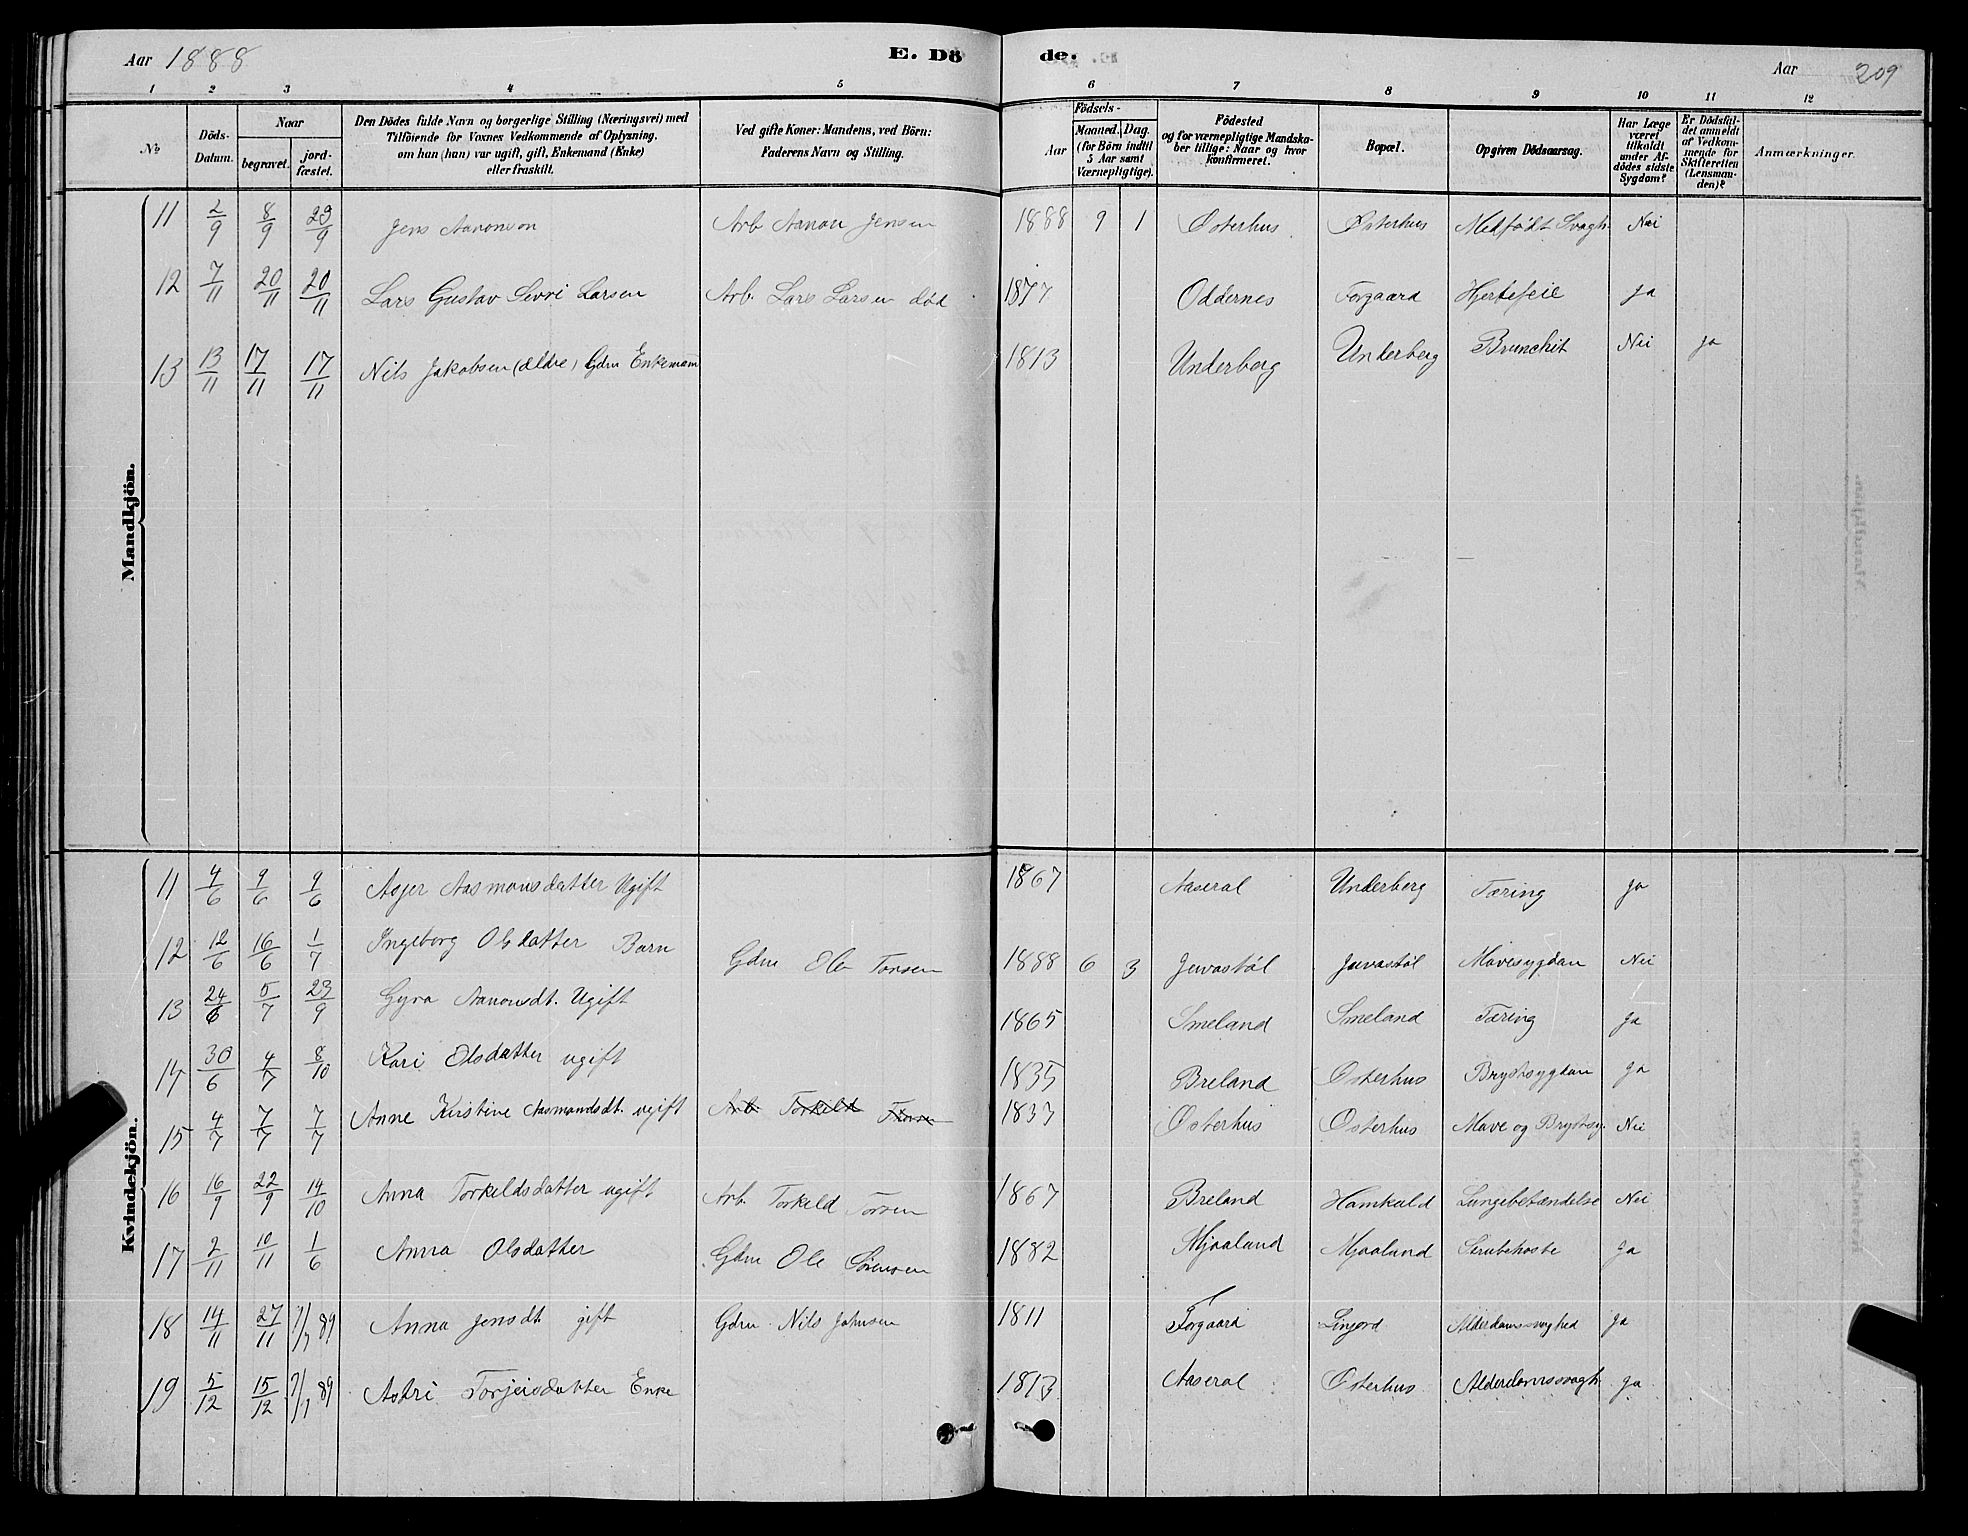 Aar 1888
E. Dö
de:
Aar 209
1 2 3 4 5 6 7 8 9 10 11 12
№
Döds-Datum.
Naar
begravet. jord-fæstet.
Den Dödes fulde Navn og borgerlige Stilling (Næringsvei) med
Tilföiende for Voxnes Vedkommende af Oplysning,
om han (hun) var ugift, gift, Enkemand (Enke)
eller fraskilt.
Ved gifte Koner: Mandens, ved Börn:
Faderens Navn og Stilling.
Aar
Födsels-
Maaned. Dag.
(for Börn indtil
5 Aar samt
Værnepligtige).
Födested
og for værnepligtige Mandska-
ber tillige: Naar og hvor
Konfirmeret.
Bopæl.
Opgiven Dödsaarsag.
Har Læge
været
tilkaldt
under Af-
dödes sidste
Sygdom?
Er Dödsfal-
det anmeldt
af Vedkom-
mende for
Skifteretten
(Lensman-
den)?
Anmærkninger.
Mandkjön.
11 2/9 8/9 29/9 Jens Aanonson Arb Aanon Jensen 1888 9 1 Østerhus Østerhus Medfødt Svagh. Nei
12 7/11 20/11 20/11 Lars Gustav Sevri Larsen Arb. Lars Larsen død 1877 Oddernes Forgaard Hjertefeil Ja
13 13/11 17/11 17/11 Nils Jakobsen (ældre) Gdm Enkemann 1813 Underberg Underberg Brunchit Nei Ja
Kvindekjön.
11 4/6 9/6 9/6 Asjer Aasmonsdatter Ugift 1867 Aaseral Underberg Tæring Ja
12 12/6 16/6 1/7 Ingeborg Olsdatter Barn Gdm Ole Torsen 1888 6 3 Juvastøl Juvastøl Mavesygdom Nei
13 24/6 5/7 23/9 Gyra Aanonsdt. Ugift 1865 Smeland Smeland Tæring Ja
14 30/6 4/7 8/10 Kari Olsdatter ugift 1835 Breland Østerhus Brystsygdom Ja
15 4/7 7/7 7/7 Anne Kirstine Aasmundsdt. ugift Arb. Torkild 1837 Østerhus Østerhus Mave og Brystsy. Nei
16 16/9 22/9 14/10 Anna Torkeldsdatter ugift Arb. Torkeld Torsen 1867 Breland Homkald Lungebetændelse Nei
17 2/11 10/11 1/6 Anna Olsdatter Gdm Ole Sørensen 1882 Mjaaland Mjaaland Strubehoste Ja
18 14/11 27/11 7/7 89 Anna Jensdt gift Gdm. Nils Johnsen 1811 Forgaard Linjord Alderdomssvaghed Ja
19 5/12 15/12 7/7 89 Astri Torjeisdatter Enke 1813 Aaseral Østerhus Alderdomssvagh. Ja